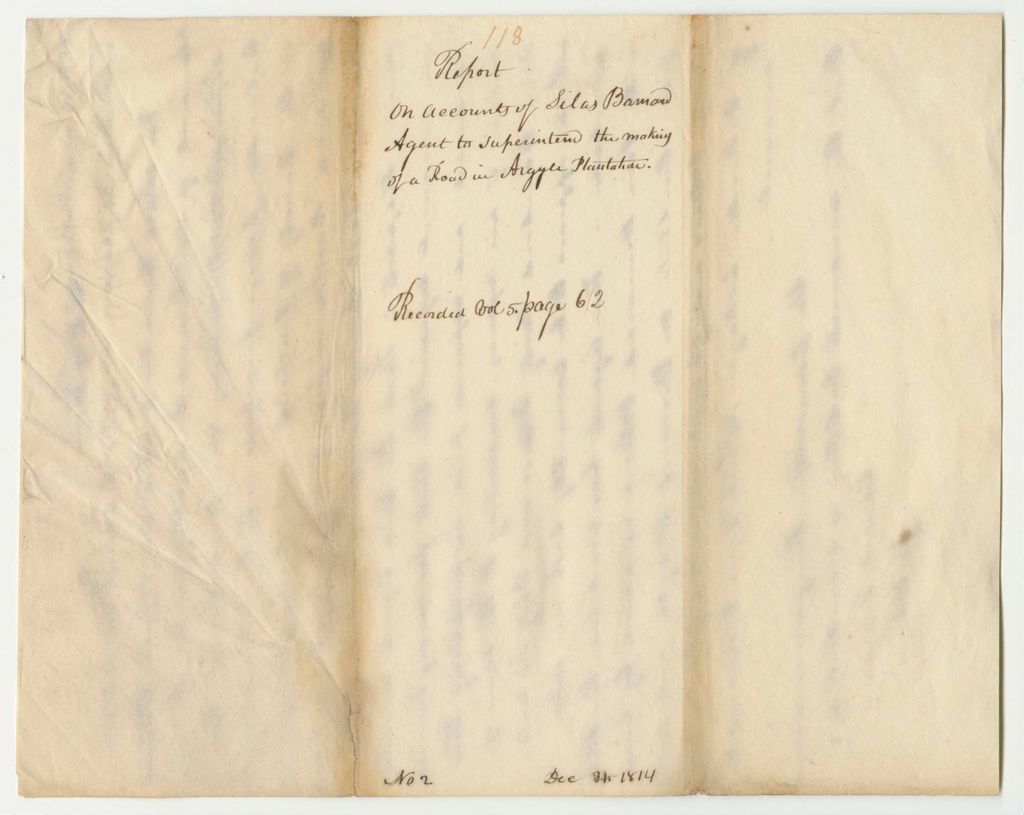 118
Report
On accounts of Silas Barnard
Agent to superintend the making
of a Road in Argyle Plantation.
Recorded Vol 5. page 62
No 2
Dec 1814